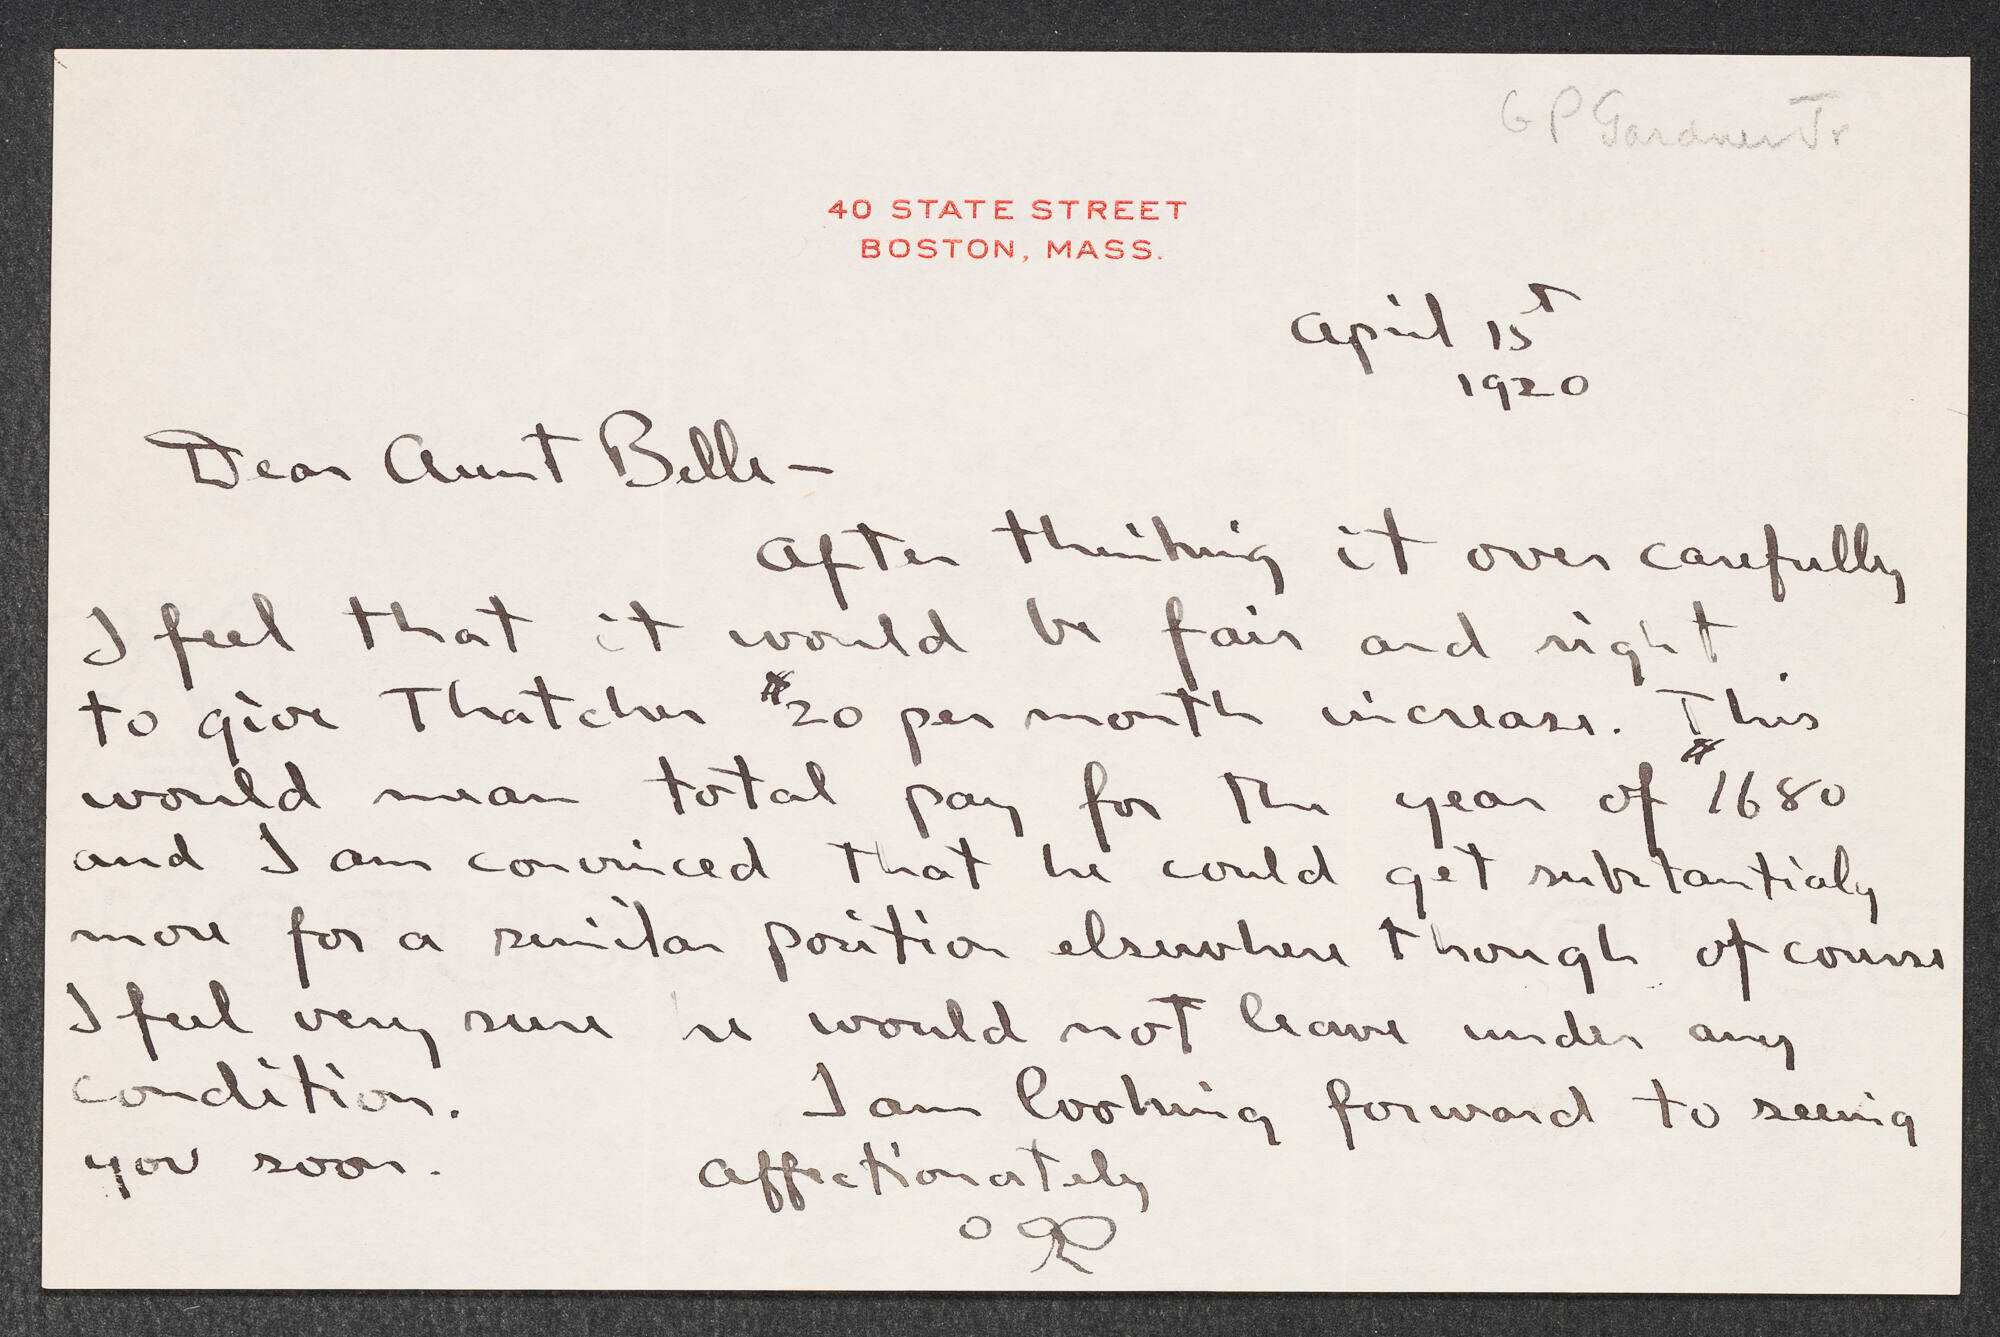 G P Gardner Jr
40 STATE STREET
BOSTON, MASS.
April 15t
1920
Dear Aunt Belle –
After thinking it over carefully
I feel that it would be fair and right
to give Thatcher $20 per month increase. This
would mean total pay for the year of $1680
and I am convinced that he could get substantialy
more for a similar position elsewhere though of course
I feel very sure he would not leave under any
condition. I am looking forward to seeing
you soon. Affectionately